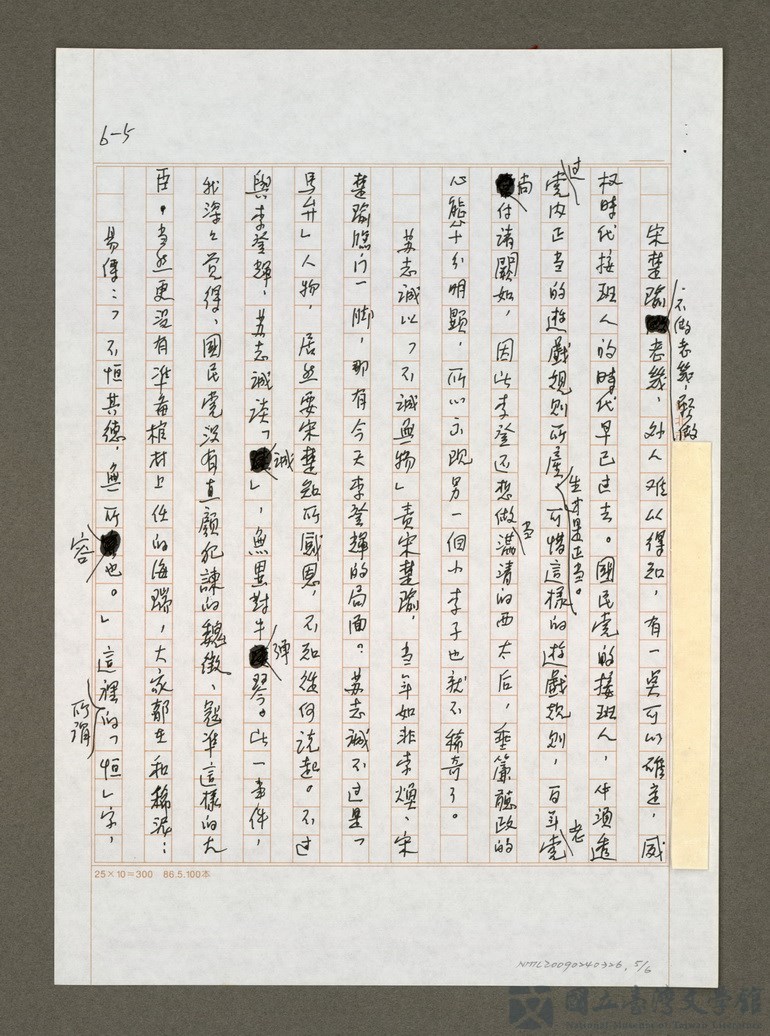 6-5
不做老幾，願做
宋楚瑜老幾，外人難以得知，有一點可以確定，威
权時代接班人的時代早已过去。國民党的接班人，必須透
过
党内正当的遊戲規則所產生才是正当。可惜這樣的遊戲規則，百年老党
尚付諸闕如，因此李登还想做滿清的西太后，垂簾聽政的
心態十分明顯，所以出現另一個小李子也就不稀奇了。
苏志誠以「不誠無物」責宋楚瑜，当年如非李煥、宋
楚瑜臨门一脚，那有今天李登輝的局面？苏志誠不过是「
馬弁」人物，居然要宋楚知所感恩，不知從何説起。不过
與李登輝、苏志誠談「誠」，無異對牛彈琴。此一事件，
我深々覚得，國民党没有直顏犯諫的魏徵、寇準這樣的大
臣。当然更没有準备棺材上任的海瑞，大家都在和稀泥：
易傳：「不恒其德，無所容也。」這裡所謂的「恒」字，
25×10=300 86.5.100本
NMTL20090240326, 5/6
國立臺灣文學館
National Museum of Taiwan Literature